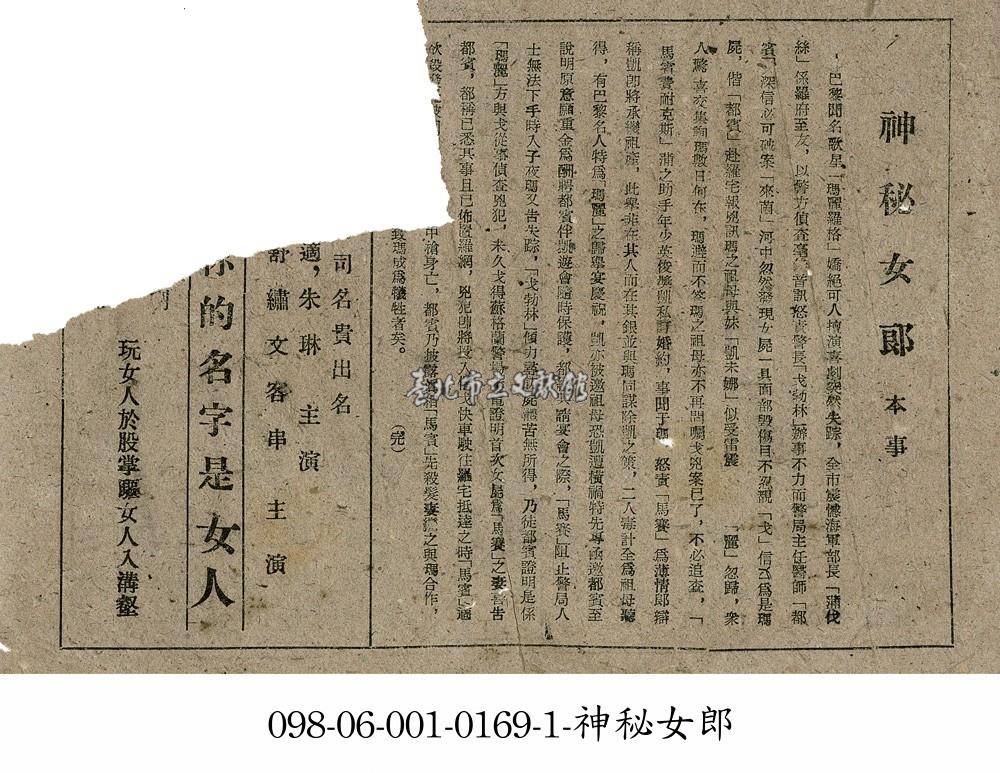 神秘女郎 本事
巴黎聞名歌星「瑪麗羅格」嬌絕可人擅演喜劇突然失踪，全市震憾海軍部長「蒲伐
絲」係羅府至友，以警方偵查毫無音訊怒責警長「戈勃林」辦事不力而警局主任醫師「都
賓」深信必可破案「來茵」河中忽然發現女屍一具面部毀傷目不忍覩「戈」信以為是瑪
屍，偕「都賓」赴羅宅報兇訊瑪之祖母與妹「凱未娜」似受雷震 「麗」忽歸，衆
人驚喜交集詢瑪數日何在，瑪避而不答瑪之祖母亦不再問囑戈兇案已了，不必追查，「
馬賓費耐克斯」蒲之助手年少英俊憑凱私訂婚約，事聞于麗 怒責「馬賽」為薄情郎辯
稱凱卽將承繼祖產，此舉非在其人而在其銀並與瑪同謀除凱之策，二人毒計全為祖母聽
得，有巴黎名人特為「瑪麗」之歸舉宴慶祝，凱亦被邀祖母恐凱遭橫禍特先專函邀都賓至
說明原意願重金為酬聘都賓伴凱遊會隨時保護，都 請宴會之際，「馬賽」阻止警局人
士無法下手時入子夜瑪又告失踪，「戈勃林」傾力尋 屍體苦無所得，乃徒都賓證明是係
「瑪麗」方與戈從事偵查兇犯，未久戈得蘇格蘭警 電證明首次女屍為「馬賽」之妻 告
都賓，都稱已悉其事且已佈置羅網，兇犯卽將投入 戈快車駛往羅宅抵達之時「馬賓」適
欲殺
中槍身亡，都賓乃披露 相「馬賓」先殺髮妻 之與瑪合作，
致瑪成為犧牲者矣。 （完）
司名貴出名
適，朱琳 主演
舒繡文客串主演
你的名字是女人
玩女人於股掌驅女人入溝壑
臺北市立文獻館
098-06-001-0169-1-神秘女郎